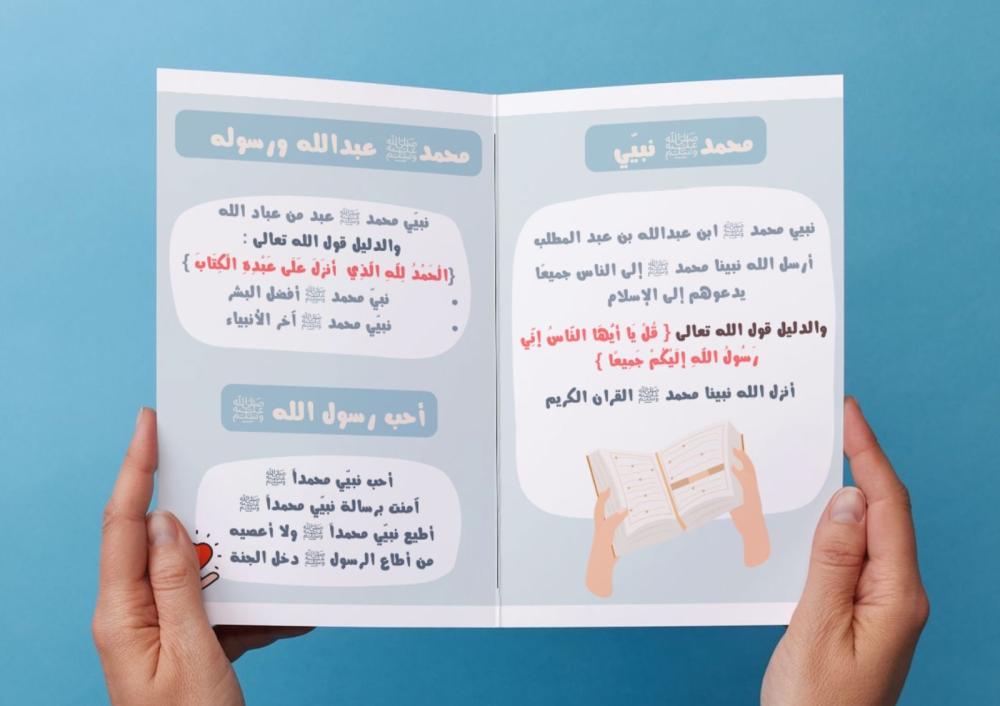 محمد ﷺ نبيّي
نبيي محمد ﷺ ابن عبدالله بن عبد المطلب
أرسل الله نبينا محمد ﷺ إلى الناس جميعًا
يدعوهم إلى الإسلام
والدليل قول الله تعالى { قُلْ يَا أَيُّهَا النَّاسُ إِنِّي
رَسُولُ اللَّهِ إِلَيْكُمْ جَمِيعًا }
أنزل الله نبينا محمد ﷺ القران الكريم
محمد ﷺ عبدالله ورسوله
نبيّي محمد ﷺ عبد من عباد الله
والدليل قول الله تعالى :
{الْحَمْدُ لِلَّهِ الَّذِي أَنزَلَ عَلَى عَبْدِهِ الْكِتَابَ }
• نبيّ محمد ﷺ أفضل البشر
• نبيّي محمد ﷺ آخر الأنبياء
أحب رسول الله ﷺ
أحب نبيّي محمداً ﷺ
آمنت برسالة نبيّي محمداً ﷺ
أطيع نبيّي محمداً ﷺ ولا أعصيه
من أطاع الرسول ﷺ دخل الجنة